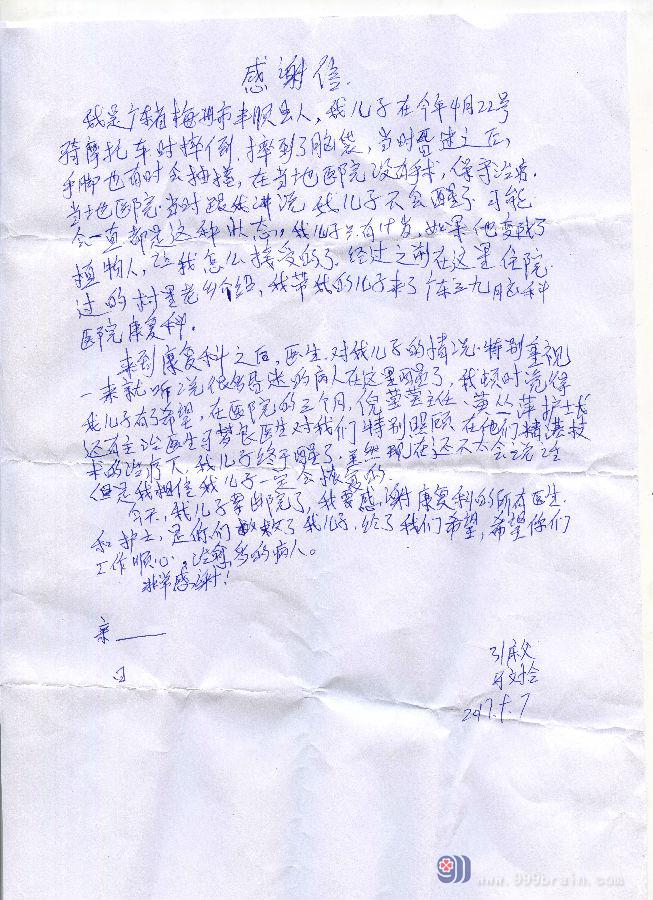 感谢信.
我是广东省梅州市丰顺县人,我儿子在今年4月22号
骑摩托车时摔倒,摔到了脑袋,当时昏迷之后,
手脚也有时会抽搐,在当地医院没有手术,保守治疗.
当地医院当时跟我讲说我儿子不会醒了 可能
会一直都是这种状态,我儿子只有十岁,如果他变成了
植物人,让我怎么接受的了.经过之前在这里住院
过的村里老乡介绍,我带我的儿子来了广东三九脑科
医院康复科.
来到康复科之后,医生对我儿子的情况特别重视
一来就听说很多昏迷的病人在这里醒了,我顿时觉得
我儿子有希望,在医院的三个月,倪莹莹主任、黄丛萍护士长
还有主治医生 医生对我们特别照顾 在他们精湛技
术的治疗下,我儿子终于醒了,虽然现在还不太会说话
但是我相信我儿子一定会恢复的.
今天,我儿子要出院了,我要感谢康复科的所有医生
和护士,是你们拯救了我儿子,给了我们希望,希望你们
工作顺心,治愈更多的病人。
非常感谢!
2017.
www.999brain.com